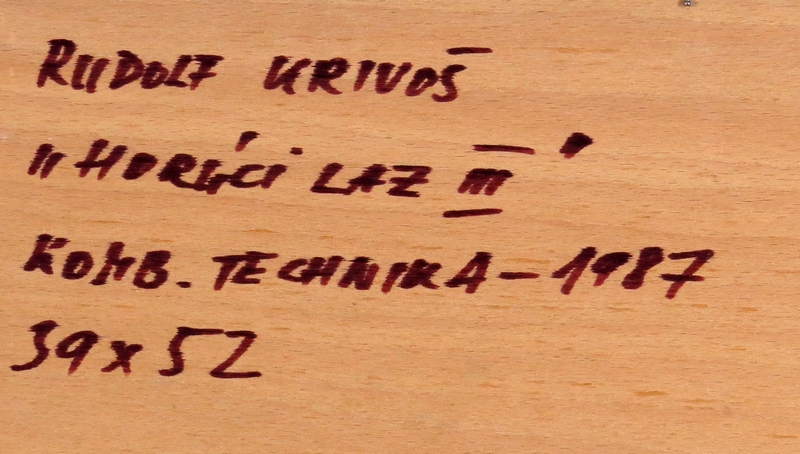 RUDOLF KRIVOŠ
„HORÚCI LAZ III"
KOMB. TECHNIKA - 1987
39 x 52